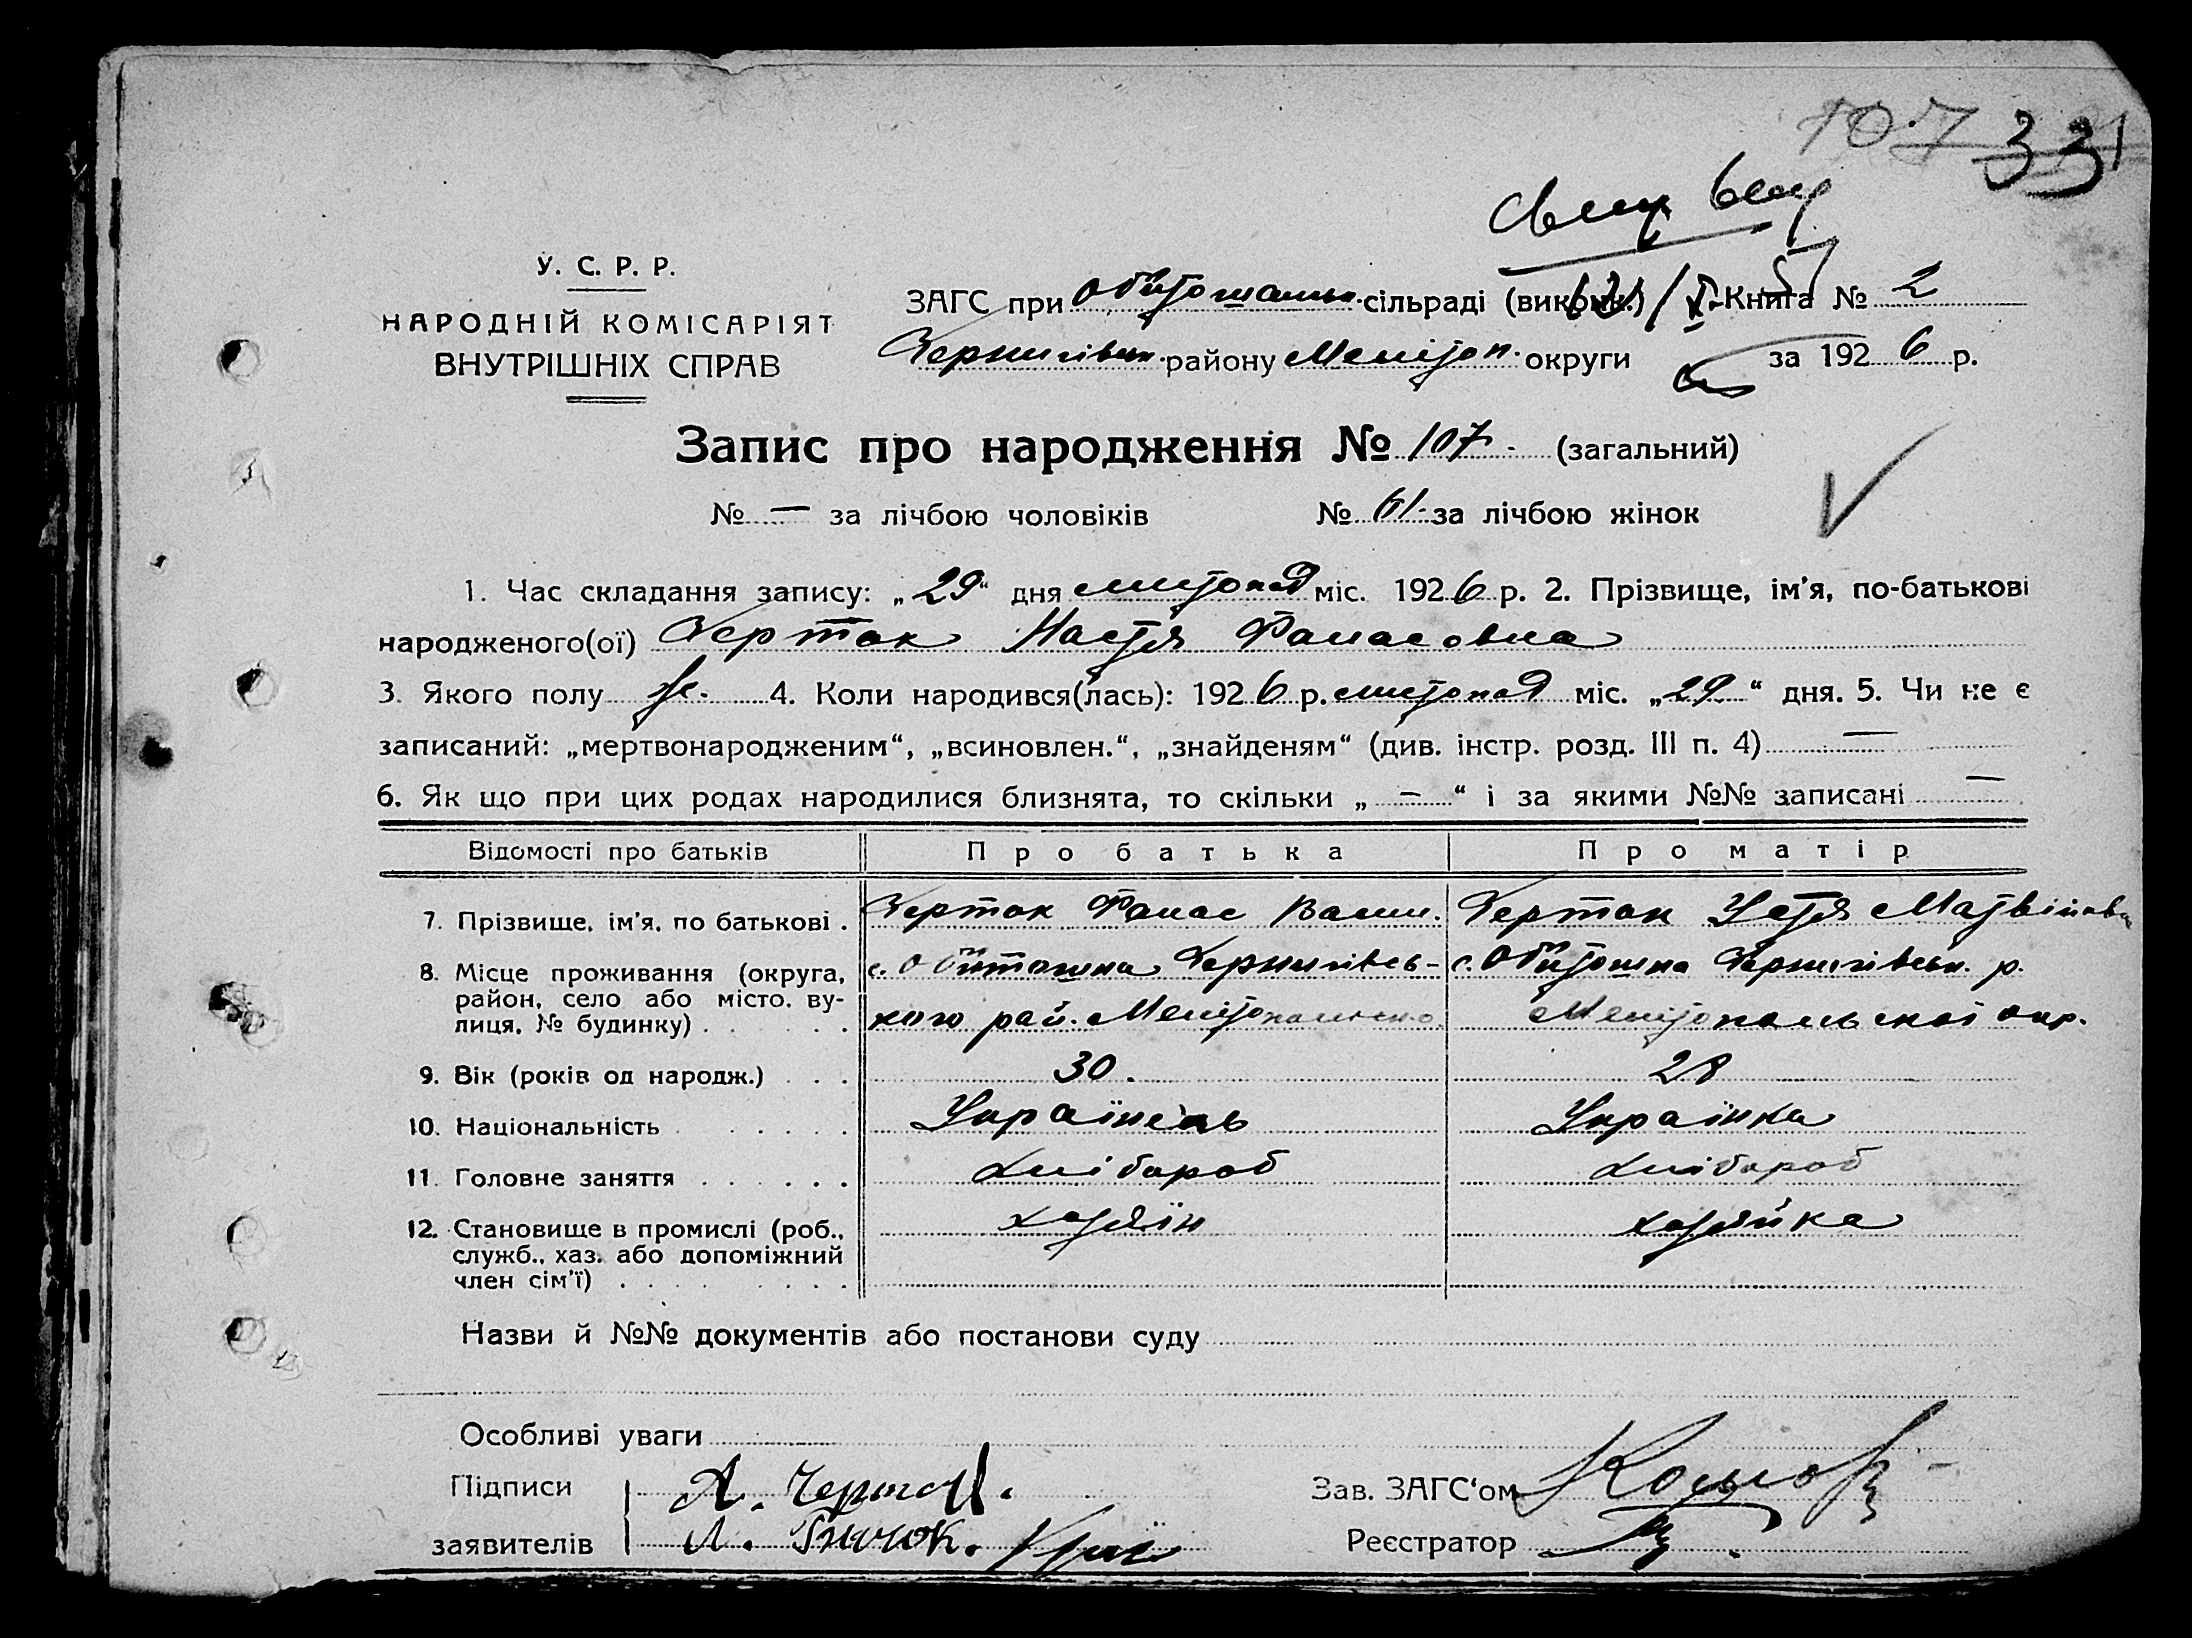 107 331
У. С. Р. Р.
НАРОДНІЙ КОМІСАРІЯТ
ВНУТРІШНІХ СПРАВ
ЗАГС при Обитошан. сільраді (виконк.) Книга № 2
Чернигівськ. району Мелітоп. округи за 1926 р.
Запис про народження № 107 (загальний)
№ — за лічбою чоловіків № 61 за лічбою жінок
1. Час складання запису: „29“ дня листопад міс. 1926 р. 2. Прізвище, ім'я, по-батькові
народженого(ої) Черток Настя Фанасовна
3. Якого полу ж. 4. Коли народився(лась): 1926 р. листопад міс. „29“ дня. 5. Чи не є
записаний: „мертвонародженим“, „всиновлен.“, „знайденям“ (див. інстр. розд. III п. 4) —
6. Як що при цих родах народилися близнята, то скільки „ — “ і за якими №№ записані —
Відомості про батьків Про батька Про матір
7. Прізвище, ім'я, по батькові . Черток Фанас Васил. Черток Устя Матвіївна
8. Місце проживання (округа, район, село або місто, ву-лиця, № будинку) с. Обиточна Чернигівсь-кого рай. Мелітопольсько с. Обиточна Чернигівськ. р. Мелітопольскої окр.
9. Вік (років од народж.) . . . 30. 28
10. Національність Українець Українка
11. Головне заняття Хлібороб Хлібороб
12. Становище в промислі (роб., служб., хаз. або допоміжний член сім'ї) хазяїн хазяйка
Назви й №№ документів або постанови суду
Особливі уваги
Підписи А. Черток. Зав. ЗАГС'ом
заявителів Реєстратор